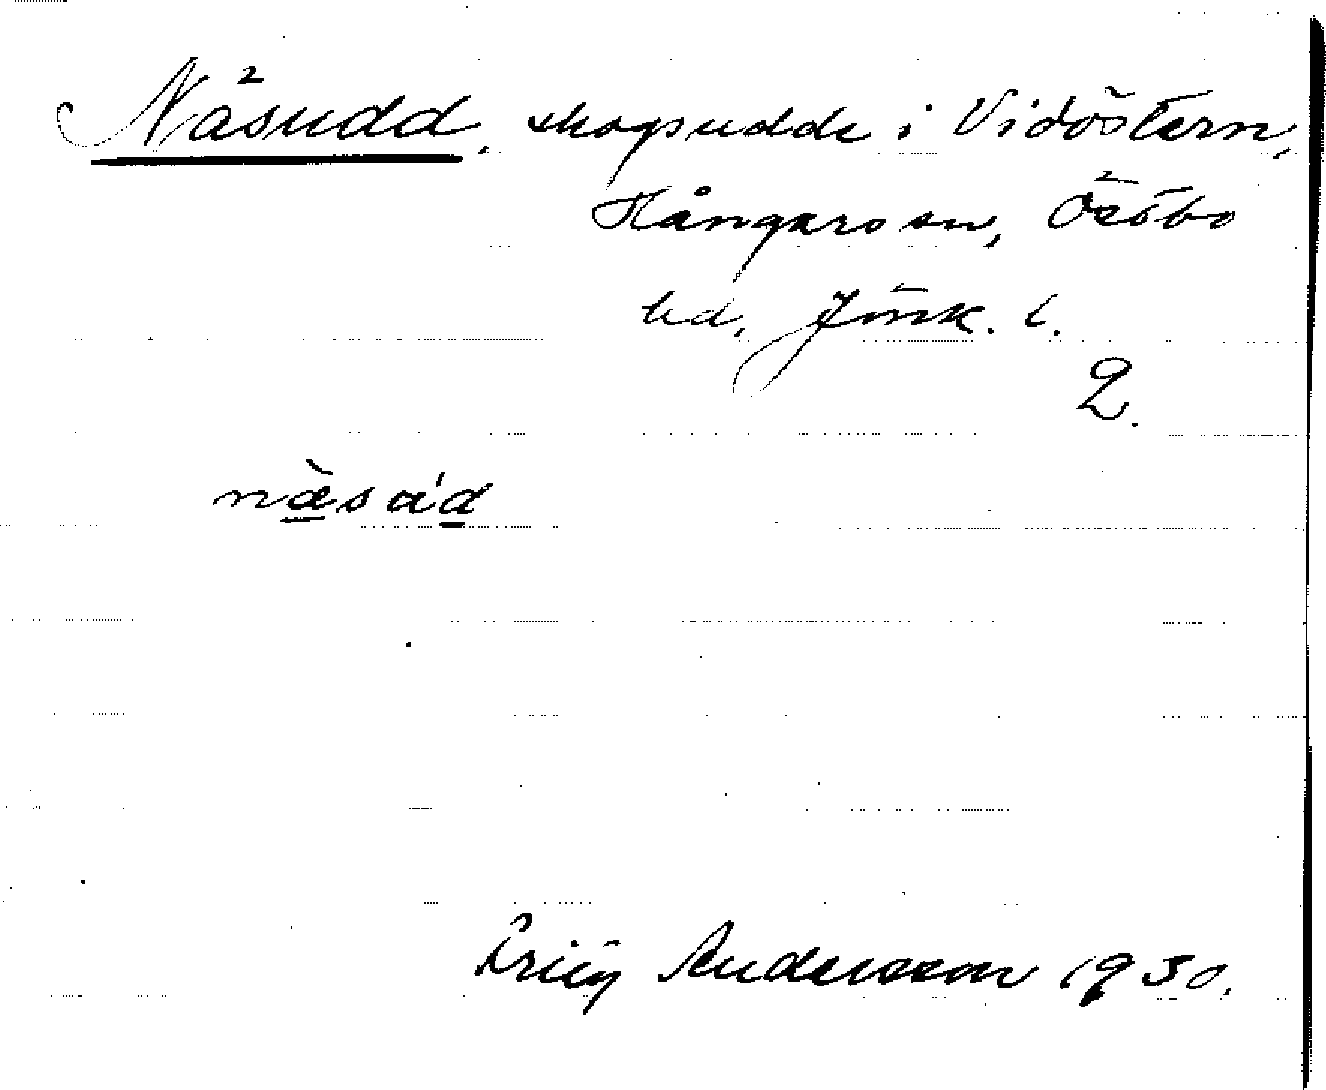 Näsudd, skogsudde i Vidöstern,
Kångarö sn, Östbo
hd, Jönk. l.
2.
næ̀sa'd
Andersson 1930.